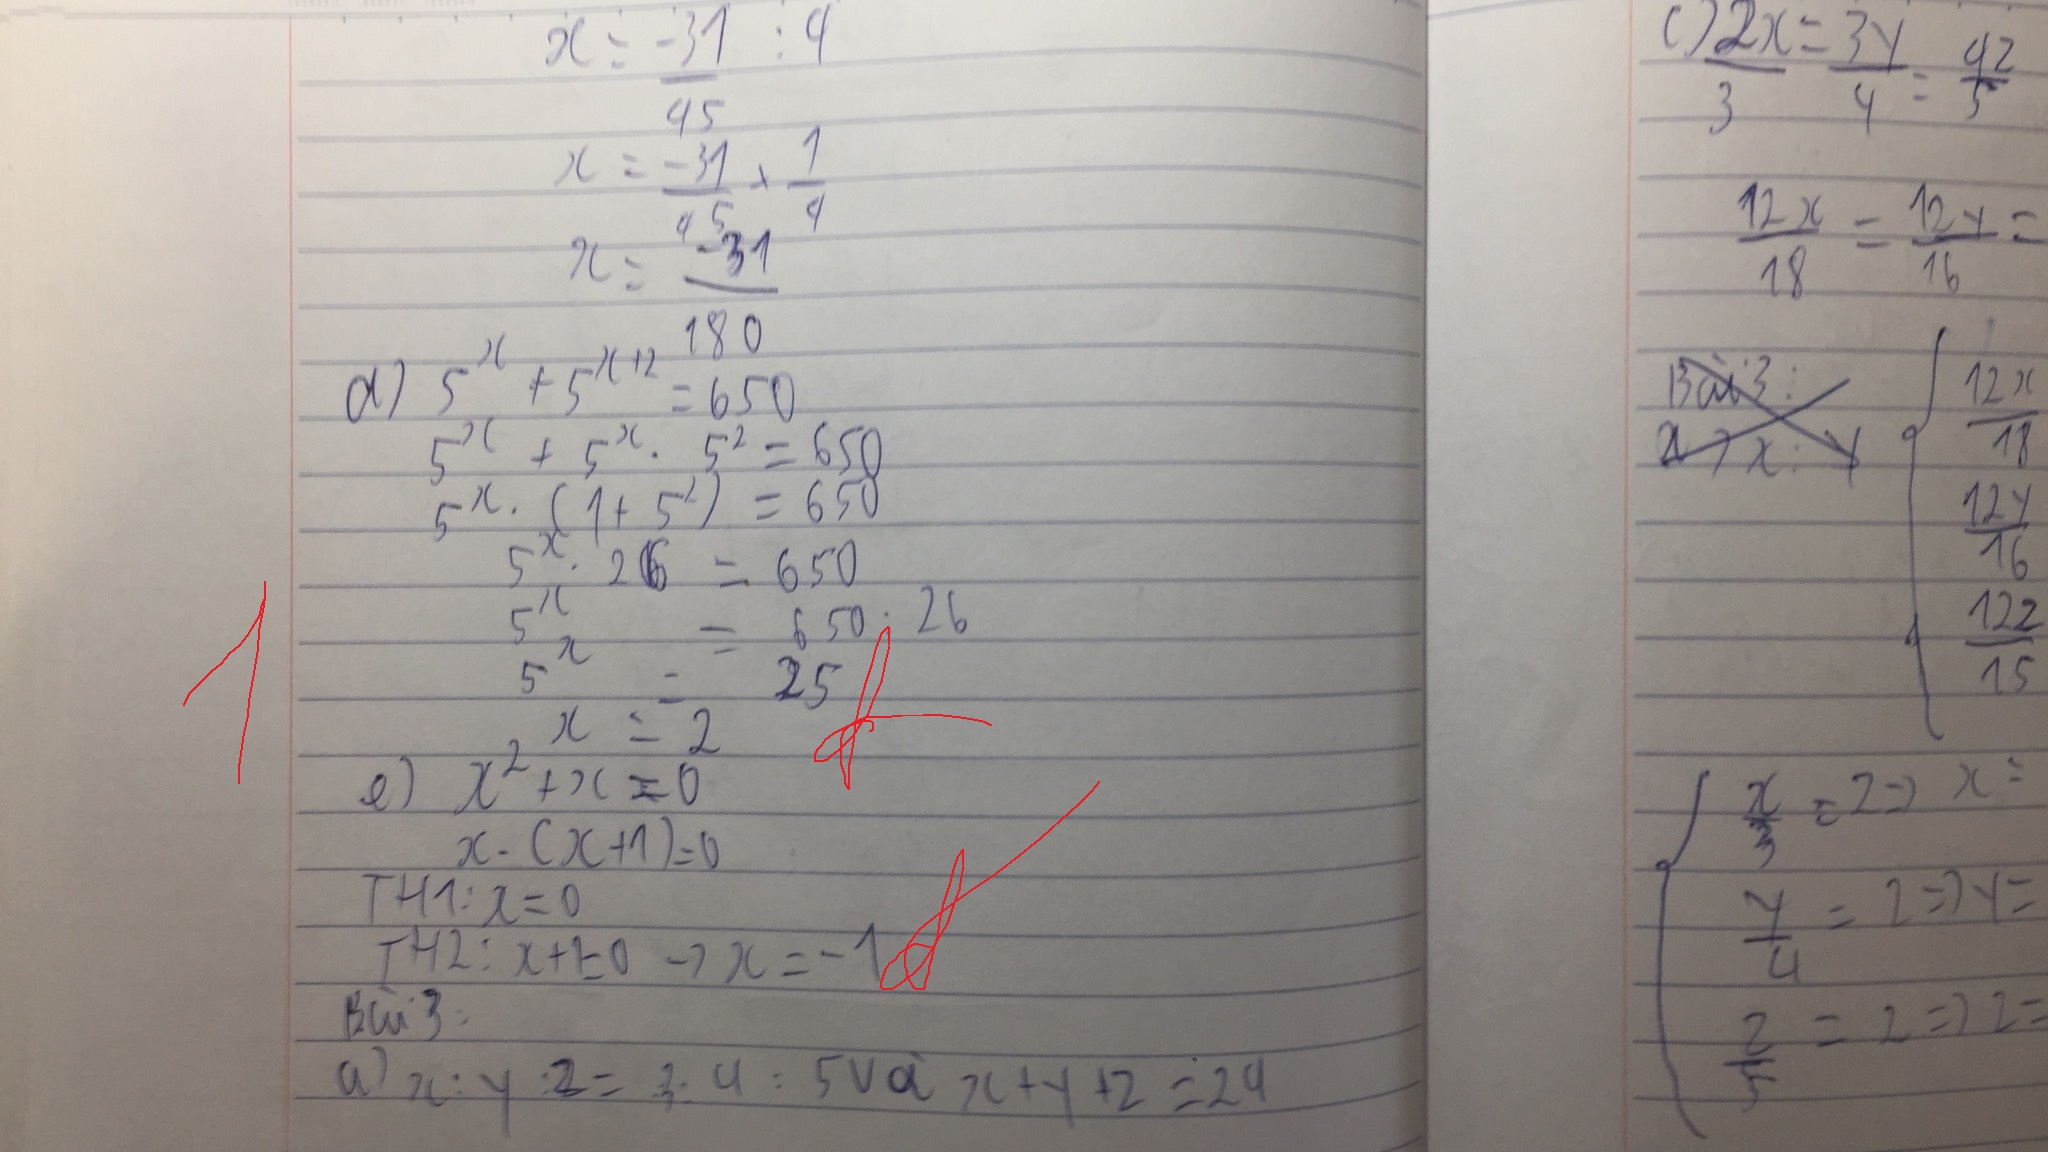 x = -31/45 : 4
x = -31/45 × 1/4
x = -31/180
d) 5^x + 5^(x+2) = 650
5^x + 5^x . 5^2 = 650
5^x . (1 + 5^2) = 650
5^x . 26 = 650
5^x = 650 : 26
5^x = 25
x = 2
1
e) x^2 + x = 0
x . (x+1) = 0
TH1: x = 0
TH2: x+1=0 -> x = -1
Bài 3:
a) x : y : z = 3 : 4 : 5 và x + y + z = 24
c) 2x/3 = 3y/4 = 4z/5
12x/18 = 12y/16 =
Bài 3:
a) x : y
12x/18
12y/16
12z/15
x/3 = 2 => x =
y/4 = 2 => y =
z/5 = 2 => z =